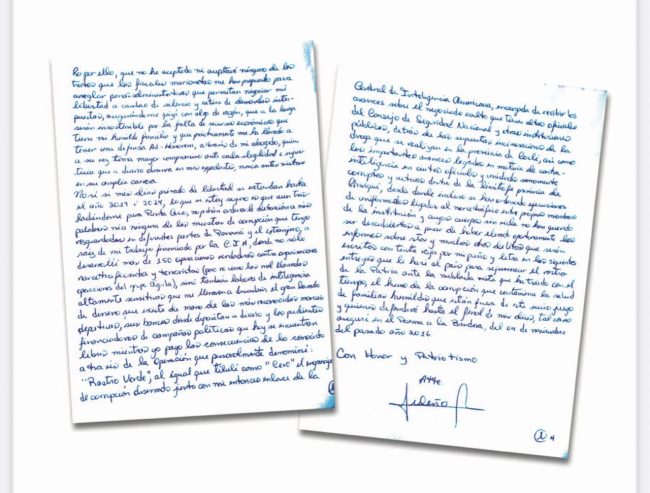 Es por ello, que no he aceptado ni aceptaré ninguno de los
tratos que los fiscales me han propuesto para
arreglar penas administrativas que permitan negociar mi
libertad a cambio de silencio y retiro de demandas inter-
puestas, argumentando quizá con algo de razón, que a la larga
será insostenible por la falta de recursos económicos que
tiene mi humilde familia y que prácticamente me ha llevado a
tener una defensa Ad-Honorem, a través de mi abogado, quien
a su vez toma mayor compromiso ante cada ilegalidad e injus-
ticia que a diario observa en mi expediente, nunca antes vistas
en su amplia carrera.
No sé si mis días privado de libertad se extiendan hasta
el año 2021 ó 2024, lo que sí estoy seguro es que aun tras-
ladándome para Punta Coco, no podrán ordenarle detención a mi
palabra ni a ninguna de las muestras de corrupción que tengo
resguardadas en diferentes partes de Panamá y el extranjero, a
raíz de mi trabajo financiado por la C.I.A, donde no sólo
desarrollé más de 150 operaciones verdaderas contra organizaciones
narcotraficantes y terroristas (pero no como las mal llamadas
operaciones del grupo Águila), sino también labores de inteligencia
altamente sensitivas que me llevaron a descubrir el gran lavado
de dinero que existe de una de las más reconocidas marcas
deportivas, sus bancos donde depositan a diario y los prominentes
financiadores de campañas políticas que hoy se encuentran
libres mientras yo pago las consecuencias de lo conocido
a través de la operación que personalmente denominé:
"Rastro Verde", al igual que titulé como "Cero" el engranaje
de corrupción observado junto con mi entonces enlace de la
Central de Inteligencia Americana, encargada de recibir los
avances sobre el negociado oculto que tienen altos oficiales
del Consejo de Seguridad Nacional y otras instituciones
públicas, detrás de las supuestas incineraciones de la
droga que se realizan en la provincia de Coclé, así como
los importantes avances logrados en materia de contra-
inteligencia en contra oficiales y unidades sumamente
corruptas y activas dentro de la limítrofe provincia de
Chiriquí, desde donde incluso se han ordenado ejecuciones
de uniformados ligados al narcotráfico entre propios miembros
de la institución y cuyos cuerpos sin vida no han querido
ser descubiertos a pesar de haber elevado oportunamente los
informes sobre estos y muchos otros delitos que serán
escritos con tinta roja por mi puño y letra en las siguientes
entregas que le haré al país para rejuvenecer el rostro
de la Patria ante la nublada vista que ha traído con el
tiempo, el humo de la corrupción que contamina la salud
de familias humildes que están fuera de este sucio juego
y quienes defenderé hasta el final de mis días, tal como
aseguré en el Poema a la Bandera, del 04 de noviembre
del pasado año 2016.
Con Honor y Patriotismo
Atte
4